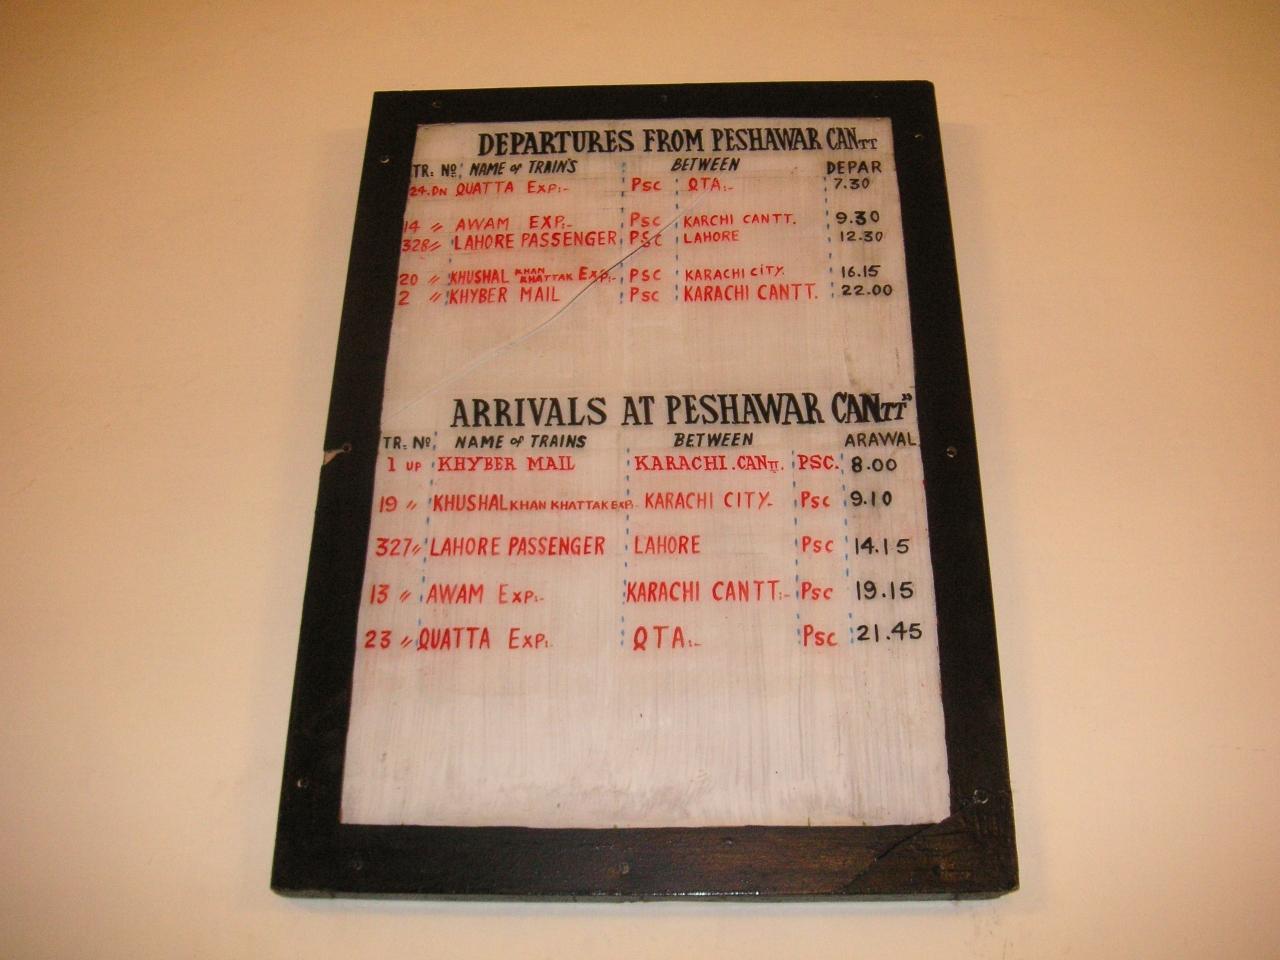 DEPARTURES FROM PESHAWAR CANTT
TR: NO: NAME OF TRAIN'S BETWEEN DEPAR
24.DN QUATTA EXP:- PSC QTA:- 7.30
14 〃 AWAM EXP:- PSC KARCHI CANTT. 9.30
328〃 LAHORE PASSENGER PSC LAHORE 12.30
20 〃 KHUSHAL KHAN KHATTAK EXP:- PSC KARACHI CITY. 16.15
2 〃 KHYBER MAIL PSC KARACHI CANTT. 22.00
ARRIVALS AT PESHAWAR CANTT"
TR: NO: NAME OF TRAINS BETWEEN ARAWAL
1 UP KHYBER MAIL KARACHI.CANTT. PSC. 8.00
19 〃 KHUSHAL KHAN KHATTAK EXP: KARACHI CITY- PSC 9.10
327〃 LAHORE PASSENGER LAHORE PSC 14.15
13 〃 AWAM EXP:- KARACHI CANTT:- PSC 19.15
23 〃 QUATTA EXP: QTA:- PSC 21.45